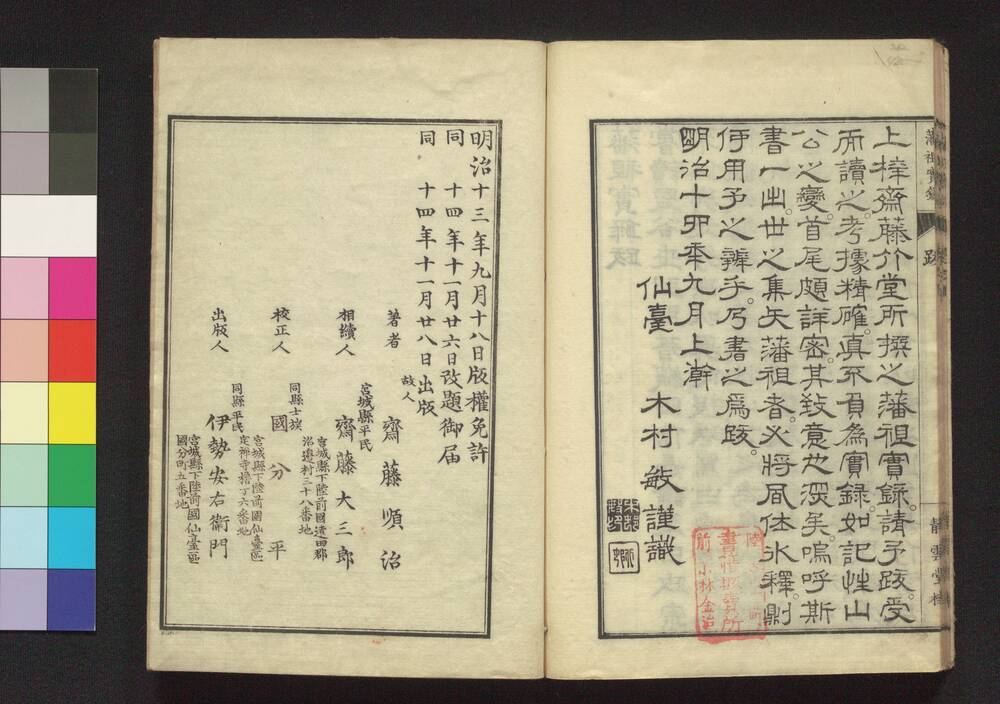 上梓齋藤竹堂所撰之藩祖實錄。請予跋。受
而讀之。考據精確。真不負為實錄。如記性山
公之變。首尾頗詳密。其致意也深矣。嗚呼斯
書一出。世之集矢藩祖者。必將凮休冰釋。則
何用予之辨乎。乃書之為跋。
明治十卯年九月上澣
仙臺 木村敏謹識
藩祖實錄
跋
書籍販賣所
小林金治
明治十三年九月十八日版權免許
同 十四年十一月廿六日改題御届
同 十四年十一月廿八日出版
著者 故人 齋藤順治
相續人 宮城縣平民 齋藤大三郎
宮城縣下陸前國遠田郡
沼邊村三十八番地
校正人 同縣士族 國分平
宮城縣下陸前國仙臺區
定禪寺櫓丁六番地
出版人 同縣平民 伊勢安右衞門
宮城縣下陸前國仙臺區
國分町五番地